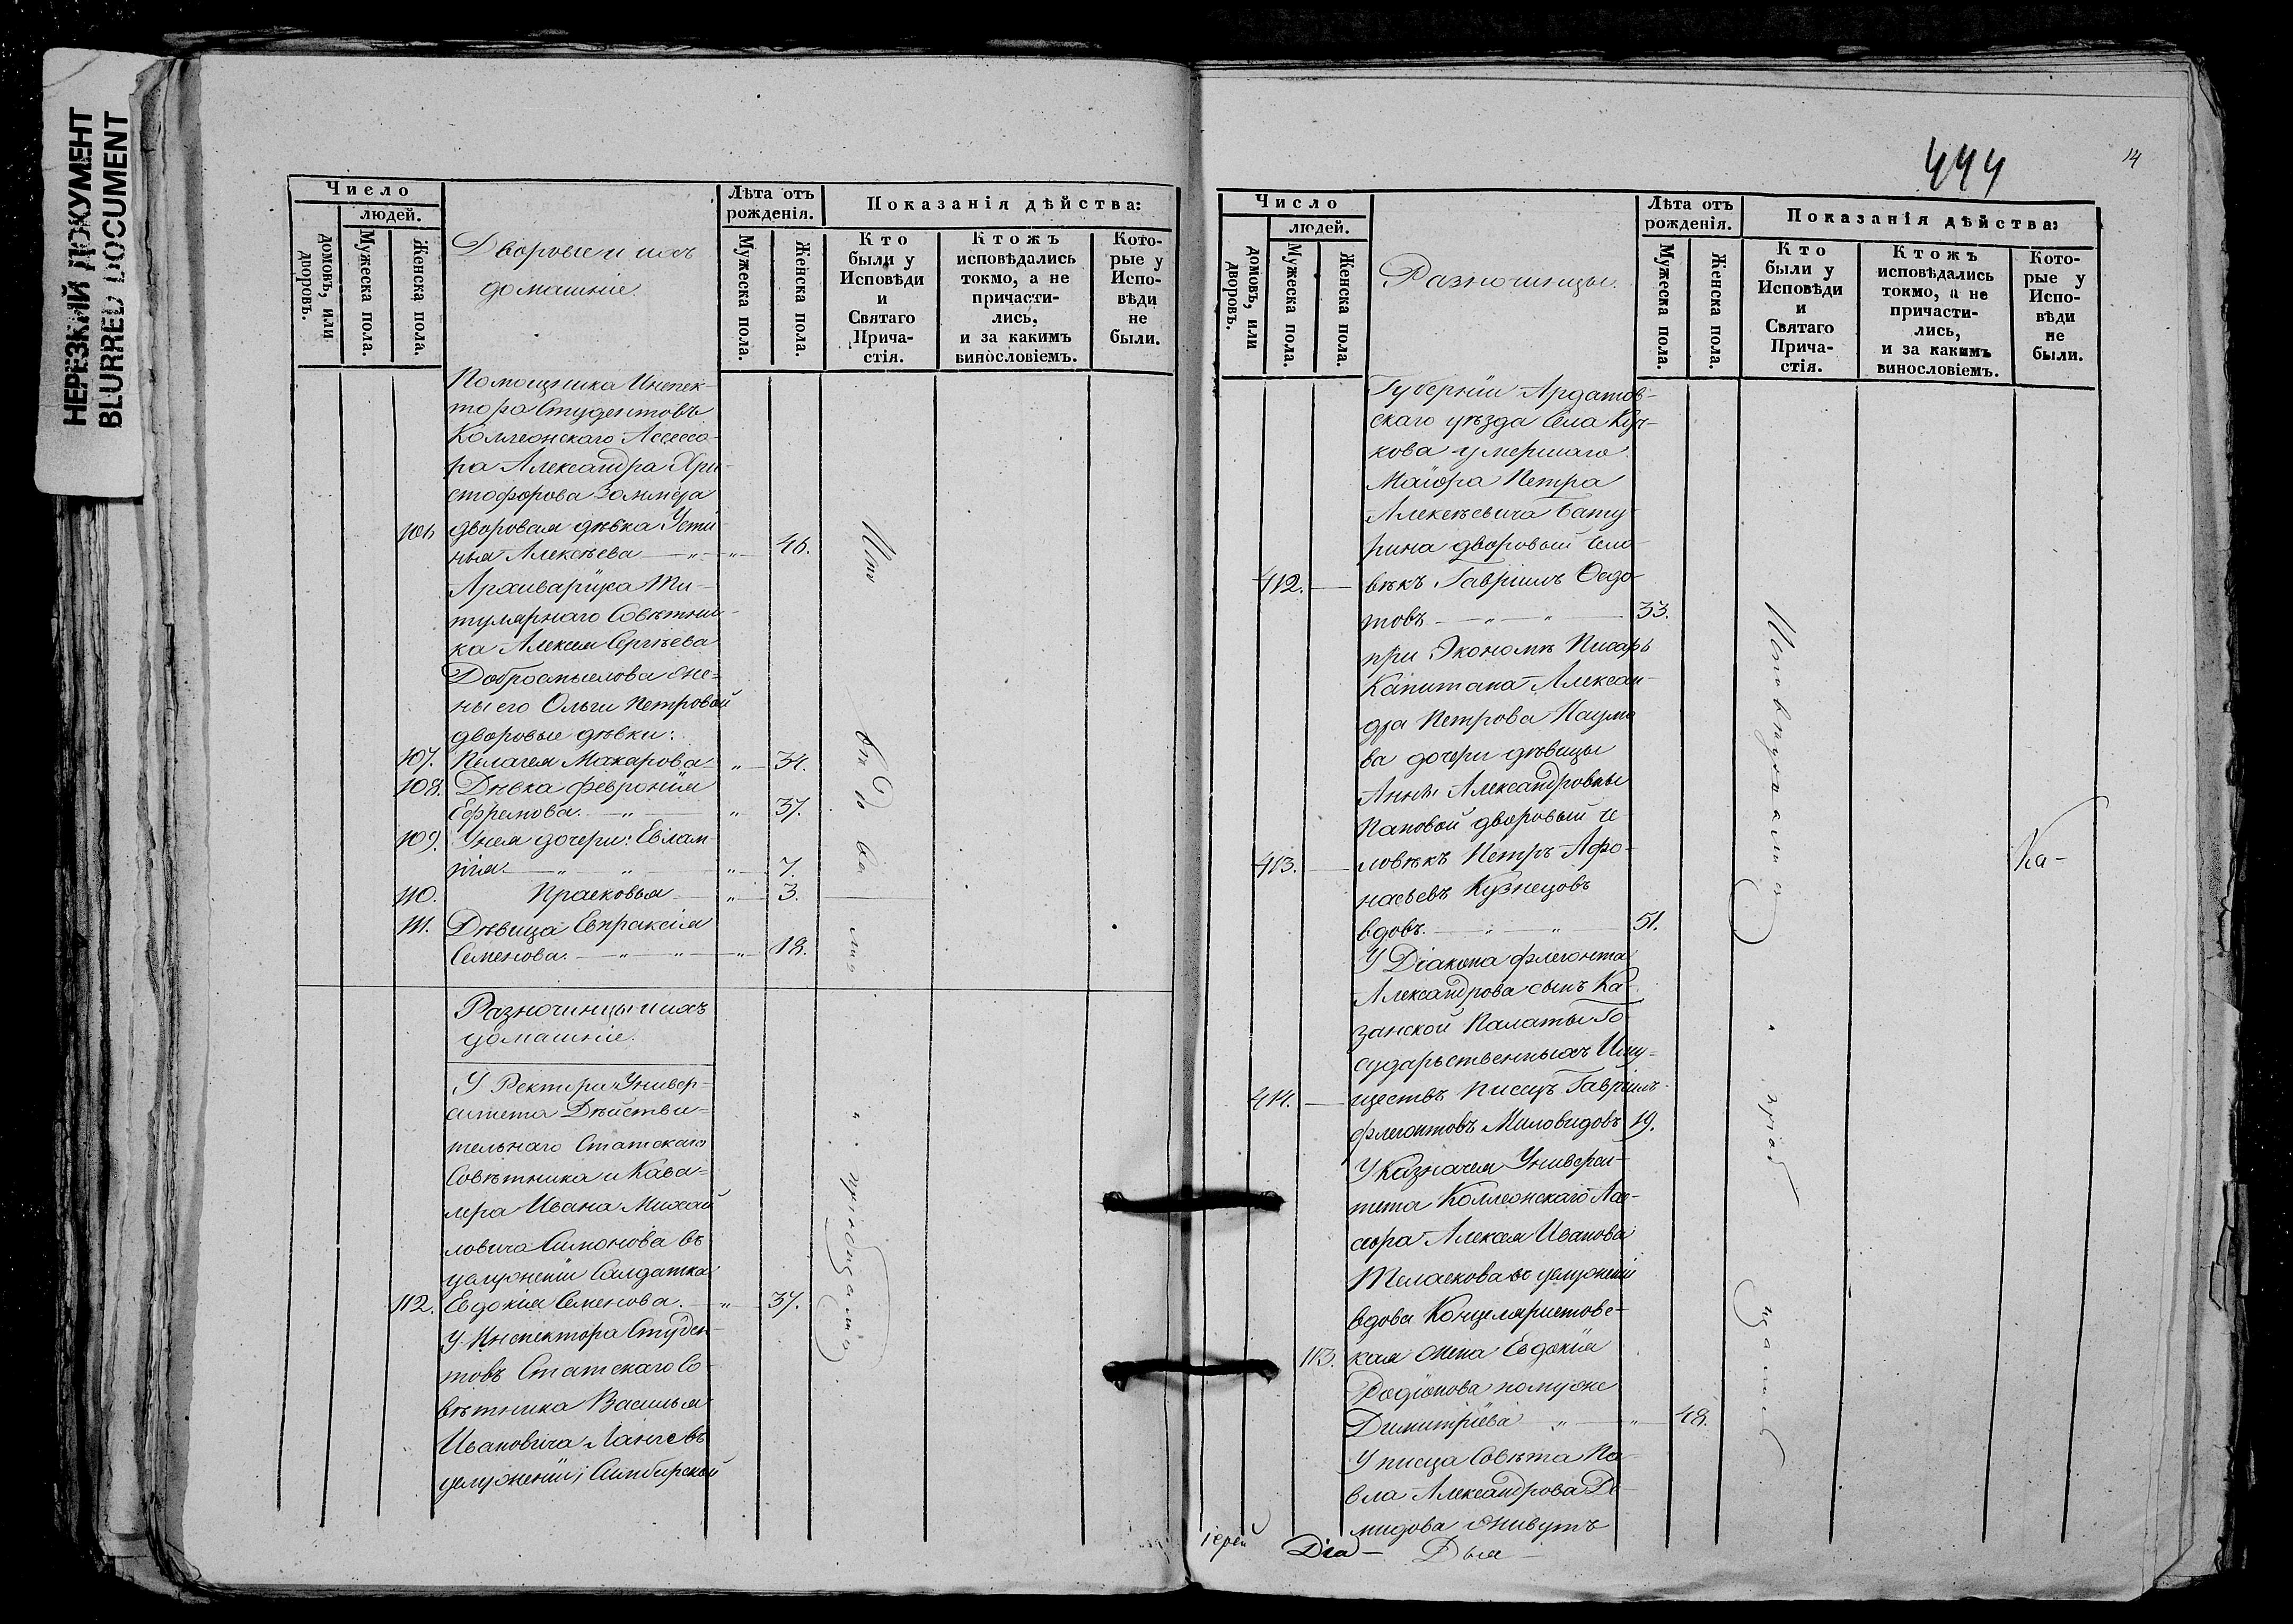 НЕРЕЗКИЙ ДОКУМЕНТ
BLURRED DOCUMENT
Число
людей.
домовъ, или дворовъ.
Мужеска пола.
Женска пола.
Дворовые и ихъ
домашніе.
Лѣта отъ
рожденія.
Мужеска пола.
Женска пола.
Показанія дѣйства:
Кто
были у
Исповѣди
и
Святаго
Прича-
стія.
Ктожъ
исповѣдались
токмо, а не
причасти-
лись,
и за какимъ
винословіемъ.
Кото-
рые у
Испо-
вѣди
не
были.
Помощника Инспек-
тора Студентовъ
Коллежскаго Ассессо-
ра Александра Хри-
стофорова Зоммера
106 дворовая дѣвка Усти
нья Алексѣева — „ — „ 46.
Архиваріуса Ти-
тулярнаго Совѣтни-
ка Алексея Сергѣева
Добросмыслова же-
ны его Ольги Петровой
дворовые дѣвки:
107. Пелагея Макарова „ 34.
108. Дѣвка Февронія
Ефремова. — „ — „ 37.
109. У нея дочери: Евлам-
пія. — „ „ „ 7.
110. Прасковья — „ 3.
111. Дѣвица Евпраксія
Семенова. — „ — „ — „ 18.
Исповѣдывались
Разночинцы и ихъ
домашніе.
У Ректора Универ-
ситета Дѣйстви-
тельнаго Статскаго
Совѣтника и Кава-
лера Ивана Михай
ловича Симонова въ
услуженіи Салдатка
112. Евдокія Семенова. „ 37.
У Инспектора Студен-
товъ Статскаго Со-
вѣтника Василья
Ивановича Ланге въ
услуженіи; Симбирской
444
14
Число
людей.
домовъ, или дворовъ.
Мужеска пола.
Женска пола.
Разночинцы.
Лѣта отъ
рожденія.
Мужеска пола.
Женска пола.
Показанія дѣйства:
Кто
были у
Исповѣди
и
Святаго
Прича-
стія.
Ктожъ
исповѣдались
токмо, а не
причасти-
лись,
и за какимъ
винословіемъ.
Кото-
рые у
Испо-
вѣди
не
были.
Губерніи Ардатов-
скаго уѣзда Села Куч-
кова умершаго
Маіора Петра
Алексѣевича Бату-
рина дворовый чело-
112. — вѣкъ Гавріилъ Ѳедо-
товъ — „ — „ — 33.
при Экономѣ Писарь
Капитана Алексан-
дра Петрова Наумо
ва дочери дѣвицы
Анны Александровны
Паповой дворовый че
113. — ловѣкъ Петръ Афо-
насьевъ Кузнецовъ
вдовъ. — „ — „ — 51.
У Діакона Флегонта
Александрова сынъ Ка-
занской Палаты Го-
сударьственныхъ Иму-
114. — ществъ Писецъ Гавріилъ
Флегонтовъ Миловидовъ 19.
У Казначея Универси-
тета Коллежскаго Асе-
сора Алексея Иванова
Теласкова въ услуженіи
вдова Концеляристовс-
113. кая жена Евдокія
Родіонова по мужѣ
Димитріева „ — „ 48.
У писца Совѣта Па-
вла Александрова Де-
мидова живутъ
Ка-
Іерей Діа- Дья-